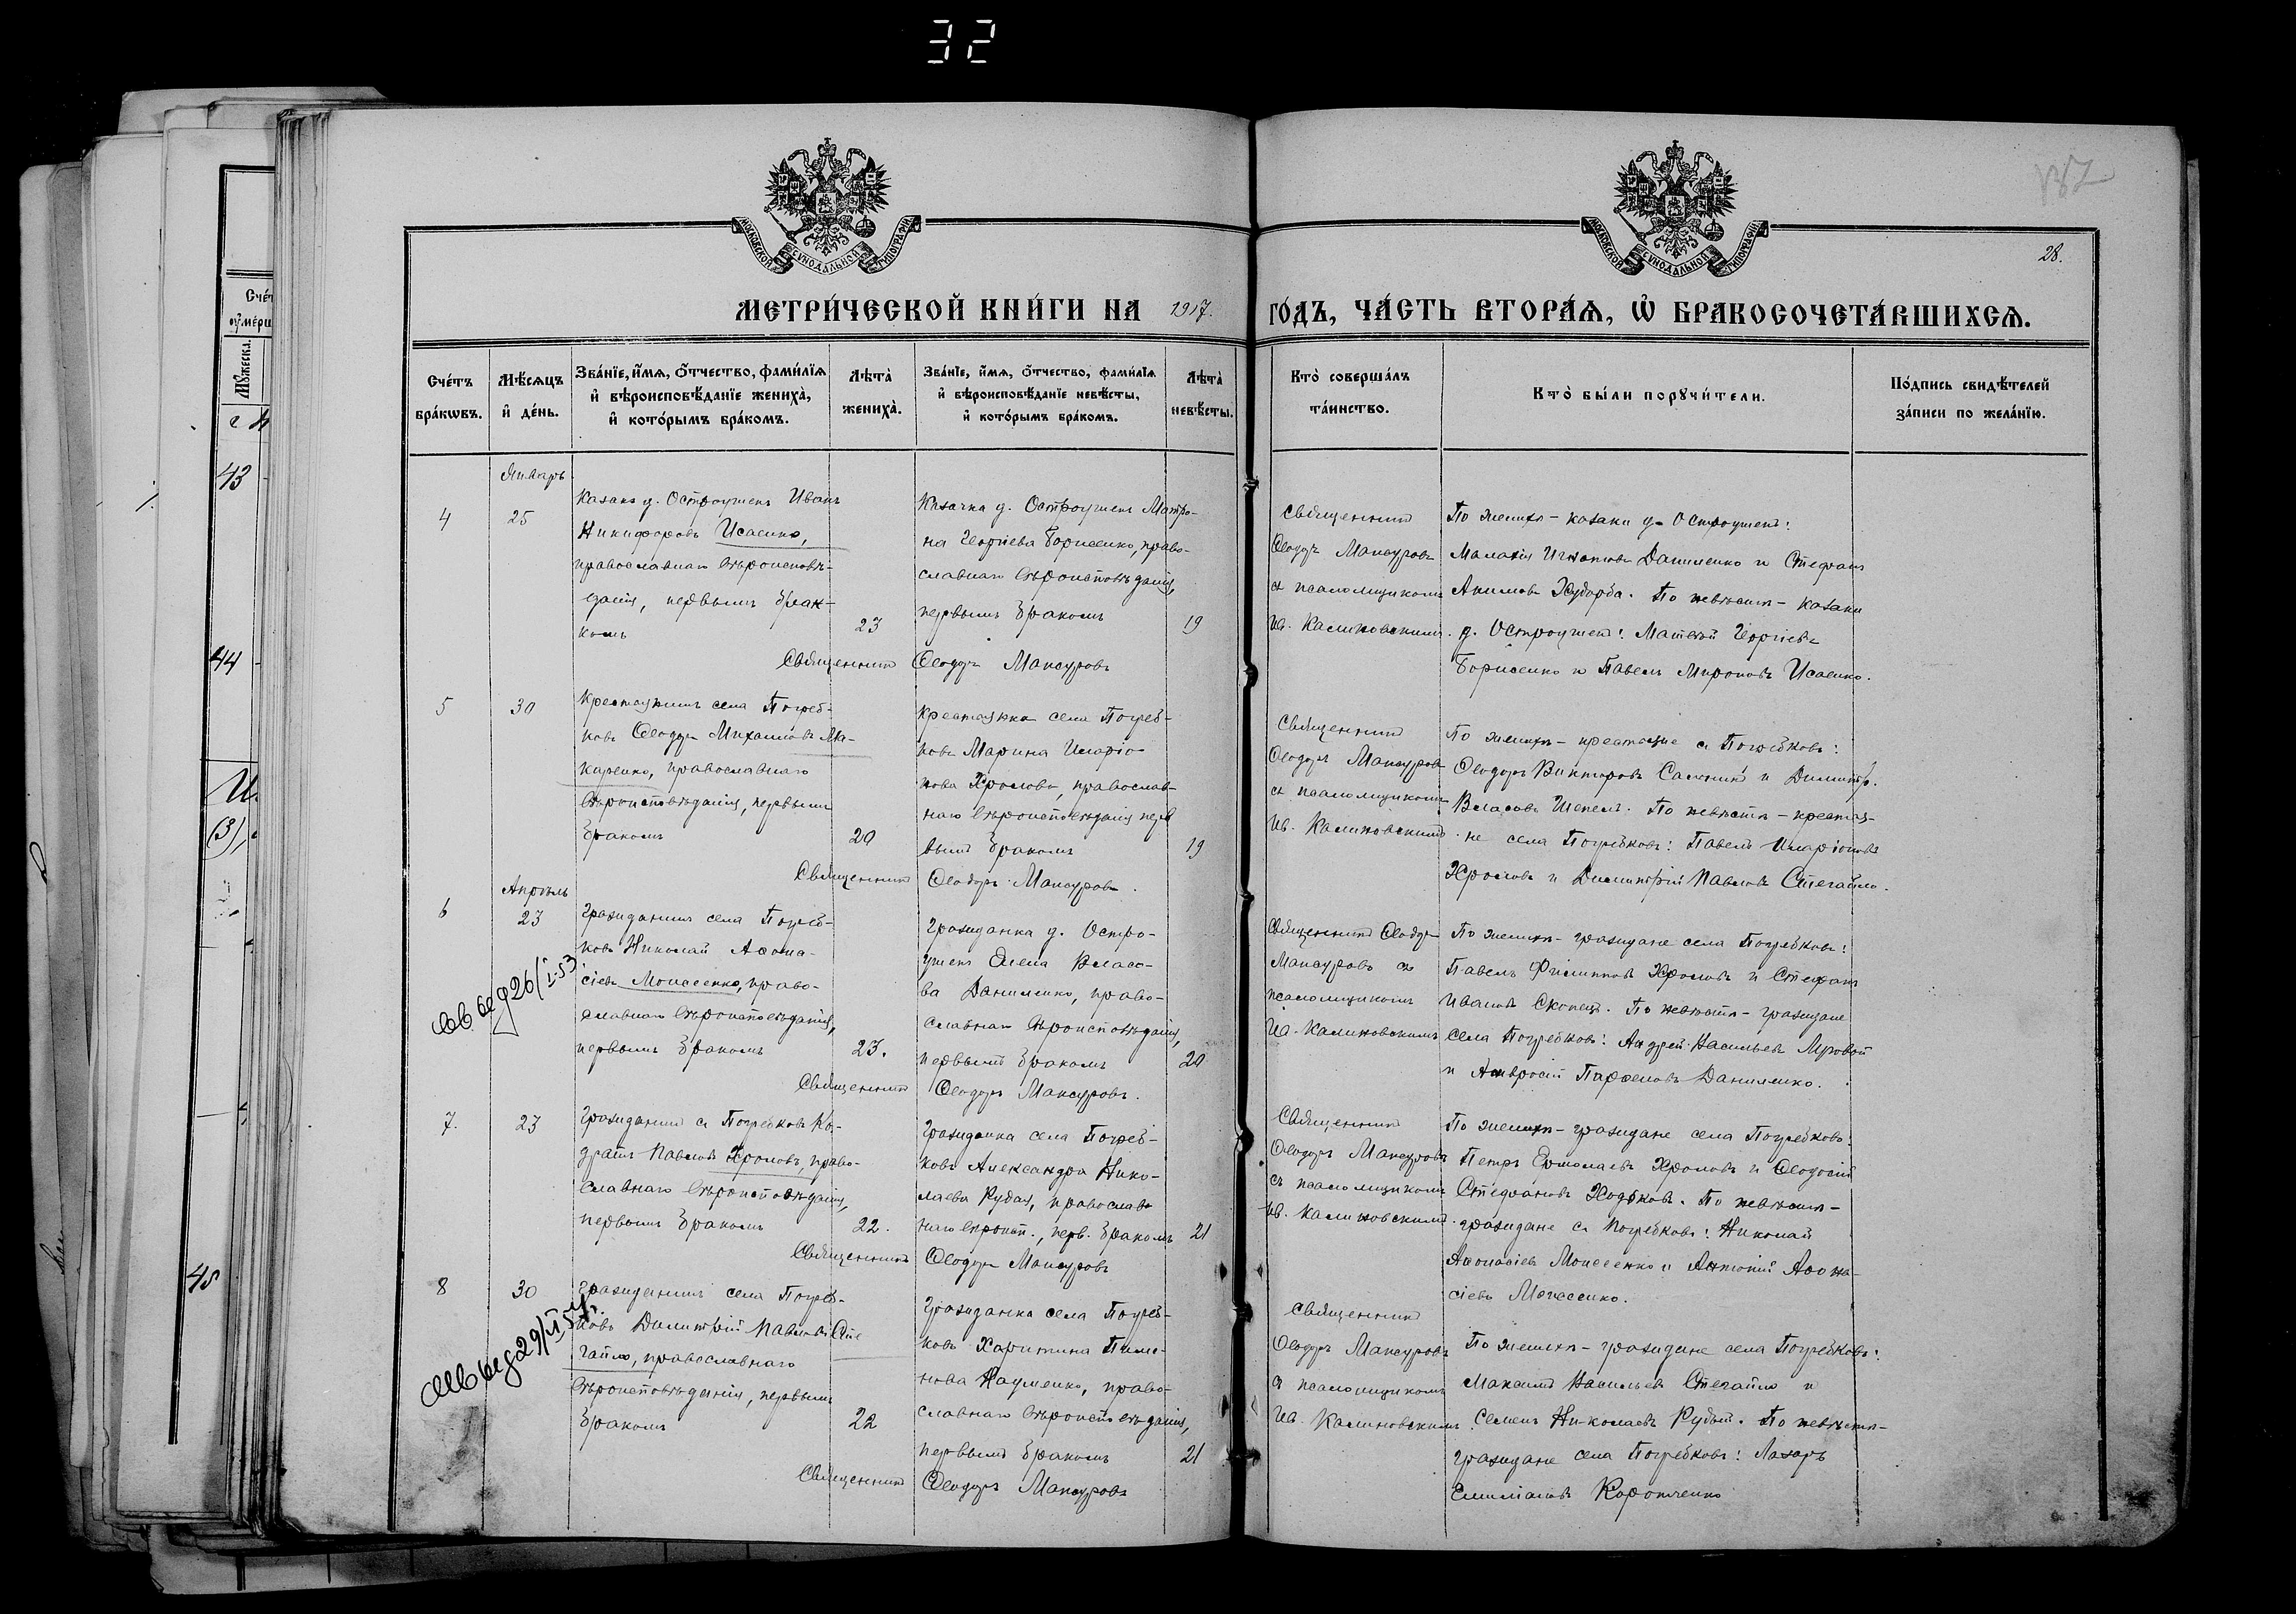 32
МОСКОВСКОЙ СѴНОДАЛЬНОЙ ТИПОГРАФІИ
МОСКОВСКОЙ СѴНОДАЛЬНОЙ ТИПОГРАФІИ
28.
МЕТРИ́ЧЕСКОЙ КНИ́ГИ НА 1917. ГО́ДЪ, ЧА́СТЬ ВТОРА́Ѧ, Ѽ БРАКОСОЧЕТА́ВШИХСѦ.
Сче́тъ бра́кѡвъ.
Мѣ́сѧцъ и҆ де́нь.
Зва́нїе, и҆́мѧ, ѻ҆́тчество, фами́лїѧ
и҆ вѣроисповѣ́данїе жениха̀,
и҆ кото́рымъ бра́комъ.
Лѣта̀ жениха̀.
Зва́нїе, и҆́мѧ, ѻ҆́тчество, фами́лїѧ
и҆ вѣроисповѣ́данїе невѣ́сты,
и҆ кото́рымъ бра́комъ.
Лѣта̀ невѣ́сты.
Кто̀ соверша́лъ
та́инство.
Кто̀ бы́ли порꙋчи́тели.
По́дпись свидѣ́телей
за́писи по жела́нїю.
Январь
4
25
Казакъ д. Остроушекъ Иванъ
Никифоровъ Исаенко,
православнаго вѣроисповѣ-
данія, первымъ брак-
комъ
23
Казачка д. Остроушекъ Матро-
на Георгіева Борисенко, право-
славнаго вѣроисповѣданія,
первымъ бракомъ
19
Священникъ Ѳеодоръ Мансуровъ
Священникъ
Ѳеодоръ Мансуровъ
съ псаломщикомъ
Ив. Калиновскимъ.
По женихѣ - казаки д. Остроушекъ:
Малахія Игнатовъ Даниленко и Стефанъ
Акимовъ Худорба. По невѣстѣ - казаки
д. Остроушекъ: Матвѣй Георгіевъ
Борисенко и Павелъ Мироновъ Исаенко.
5
30
Крестьянинъ села Погреб-
ковъ Ѳеодоръ Михаиловъ Ма-
каренко, православнаго
вѣроисповѣданія, первымъ
бракомъ
20
Крестьянка села Погреб-
ковъ Марина Иларіо-
нова Хролова, православ-
наго вѣроисповѣданія перв
вымъ бракомъ
19
Священникъ Ѳеодоръ Мансуровъ.
Священникъ
Ѳеодоръ Мансуровъ
съ псаломщикомъ
Ив. Калиновскимъ.
По женихѣ - крестьяне с. Погребковъ:
Ѳеодоръ Викторовъ Сальникъ и Димитр.
Власовъ Шепель. По невѣстѣ - крестья-
не села Погребковъ: Павелъ Иларіоновъ
Хроловъ и Димитрій Павловъ Стегайло.
Апрѣль
6
23
Гражданинъ села Погреб-
ковъ Николай Аѳана-
сіевъ Моисеенко, право-
славнаго вѣроисповѣданія,
первымъ бракомъ
23.
Гражданка д. Остро-
ушекъ Елена Власо-
ва Даниленко, право-
славнаго вѣроисповѣданія,
первымъ бракомъ
20
Священникъ Ѳеодоръ Мансуровъ.
Священникъ Ѳеодоръ
Мансуровъ съ
псаломщикомъ
Ив. Калиновскимъ
По женихѣ - граждане села Погребковъ:
Павелъ Филипповъ Хроловъ и Стефанъ
Ивановъ Скопецъ. По невѣстѣ - граждане
села Погребковъ: Андрей Васильевъ Луговой
и Амвросій Парѳеновъ Даниленко.
7.
23
Гражданинъ с. Погребковъ Ко-
дратъ Павловъ Хроловъ, право-
славнаго вѣроисповѣданія,
первымъ бракомъ
22.
Гражданка села Погреб-
ковъ Александра Нико-
лаева Рудая, православ-
наго вѣроисп., перв. бракомъ
21
Священникъ Ѳеодоръ Мансуровъ
Священникъ
Ѳеодоръ Мансуровъ
съ псаломщикомъ
Ив. Калиновскимъ.
По женихѣ - граждане села Погребковъ:
Петръ Ермолаевъ Хроловъ и Ѳеодосій
Стефановъ Ходаковъ. По невѣстѣ -
граждане с. Погребковъ: Николай
Аѳанасіевъ Моисеенко и Антоній Аѳана-
сіевъ Моисеенко.
8
30
Гражданинъ села Погреб-
ковъ Димитрій Павловъ Сте
гайло, православнаго
вѣроисповѣданія, первымъ
бракомъ
22
Гражданка села Погреб-
ковъ Харитина Пиме-
нова Науменко, право-
славнаго вѣроисповѣданія,
первымъ бракомъ
21
Священникъ Ѳеодоръ Мансуровъ
Священникъ
Ѳеодоръ Мансуровъ
съ псаломщикомъ
Ив. Калиновскимъ.
По женихѣ - граждане села Погребковъ:
Максимъ Васильевъ Стегайло и
Семенъ Николаевъ Рудый. По невѣстѣ -
граждане села Погребковъ: Лазарь
Емиліановъ Коротченко
43
44
45